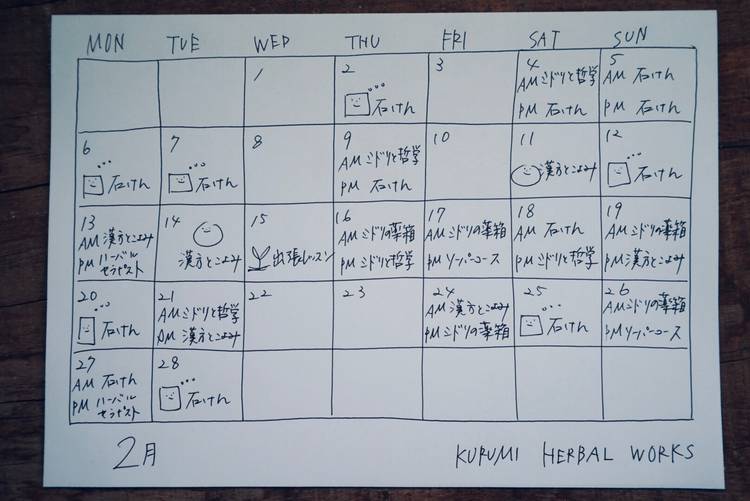 MON TUE WED THU FRI SAT SUN
1
2
石けん
3
4
AM ミドリと哲学
PM 石けん
5
AM 石けん
PM 石けん
6
石けん
7
石けん
8
9
AM ミドリと哲学
PM 石けん
10
11
漢方とこよみ
12
石けん
13
AM 漢方とこよみ
PM ハーバル
セラピスト
14
漢方とこよみ
15
出張レッスン
16
AM ミドリの薬箱
PM ミドリと哲学
17
AM ミドリの薬箱
PM リーパーコース
18
AM 石けん
PM ミドリと哲学
19
AM ミドリの薬箱
PM 漢方とこよみ
20
石けん
21
AM ミドリと哲学
AM 漢方とこよみ
22
23
24
AM 漢方とこよみ
PM ミドリの薬箱
25
石けん
26
AM ミドリの薬箱
PM リーパーコース
27
AM 石けん
PM ハーバル
セラピスト
28
石けん
2月
KURUMI HERBAL WORKS